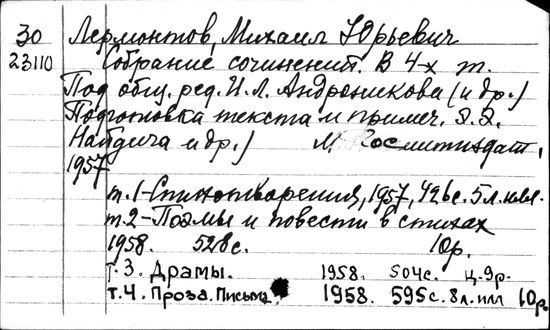 30 Лермонтов, Михаил Юрьевич
23110 Собрание сочинений. В 4-х т.
Под общ. ред. И.Л. Андроникова (и др.)
Подготовка текста и примеч. Э.Э.
Найдича и др.) М., Гослитиздат,
1957
т.1-Стихотворения, 1957, 426с. 5л. илл.
т.2-Поэмы и повести в стихах
1958. 528с. 10р.
т.3. Драмы. 1958. 504с. ц.9р.
т.4. Проза. Письма. 1958. 595с. 8л. илл 10р.